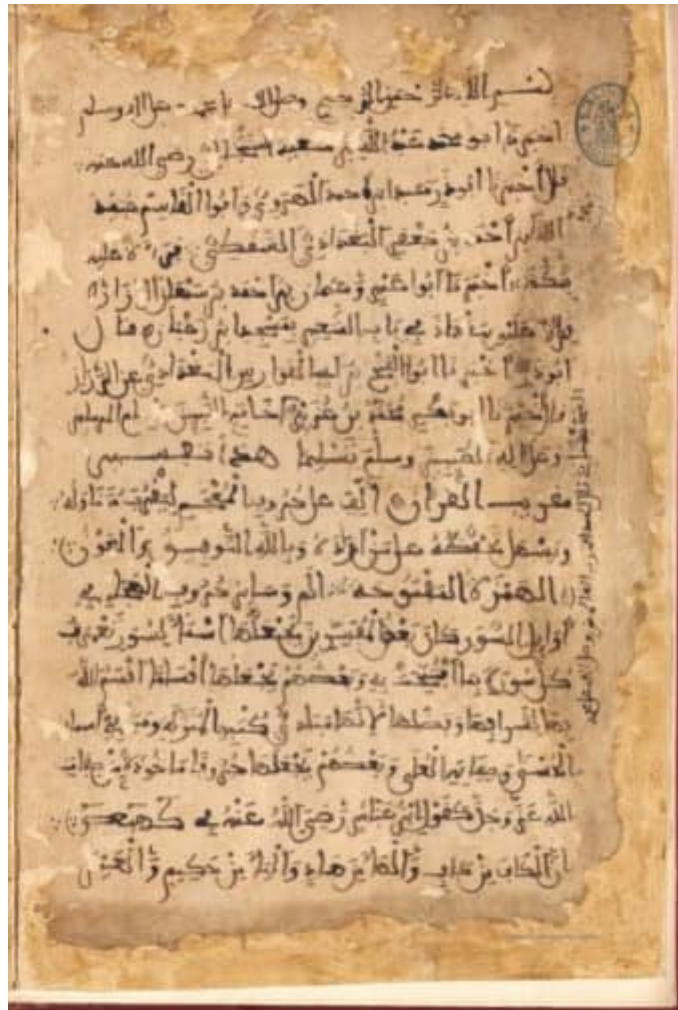 بسم الله الرحمن الرحيم وصلى الله على محمد وعلى اله وسلم
اخبرنا ابو محمد عبد الله بن سعيد رضي الله عنه
قال اخبرنا ابو ذر عبد ابن احمد الهروي وابوا القاسم عبيد
الله ابن احمد بن جعفر البغدادي السقطي قراءة عليه
بمكة اخبرنا ابوا عمرو عثمان بن احمد بن سمعان الرزاز
قراءة عليه ببغداد في باب الشعير بمسجد ابن رغبان قال
ابو ذر اخبرنا ابوا الفتح بن ابي الفوارس البغدادي عن الرزاز
قال اخبرنا ابو بكر محمد بن عزيز خاتم النبيين
وعلى اله الطيبين وسلم تسليما هذا تفسير
غريب القران الف على حروف المعجم ليقرب تناوله
ويسهل حفظه على من اراده وبالله التوفيق والعون
الهمزة المفتوحة الم وساير حروف الهجاء في
اوايل السور كان بعض المفسرين يجعلها اسماء للسور تعرف
كل سورة بما افتتحت به وبعضهم يجعلها اقساما اقسم الله
بها لشرفها وفضلها لانها مبادي كتبه المنزلة ومباني اسمائه
الحسنى وصفاته العلى وبعضهم يجعلها حروفا ماخوذة من صفات
الله عز وجل كقول ابن عباس رضي الله عنه في كهيعص
ان الكاف من كاف والهاء من هاد والياء من حكيم والعين